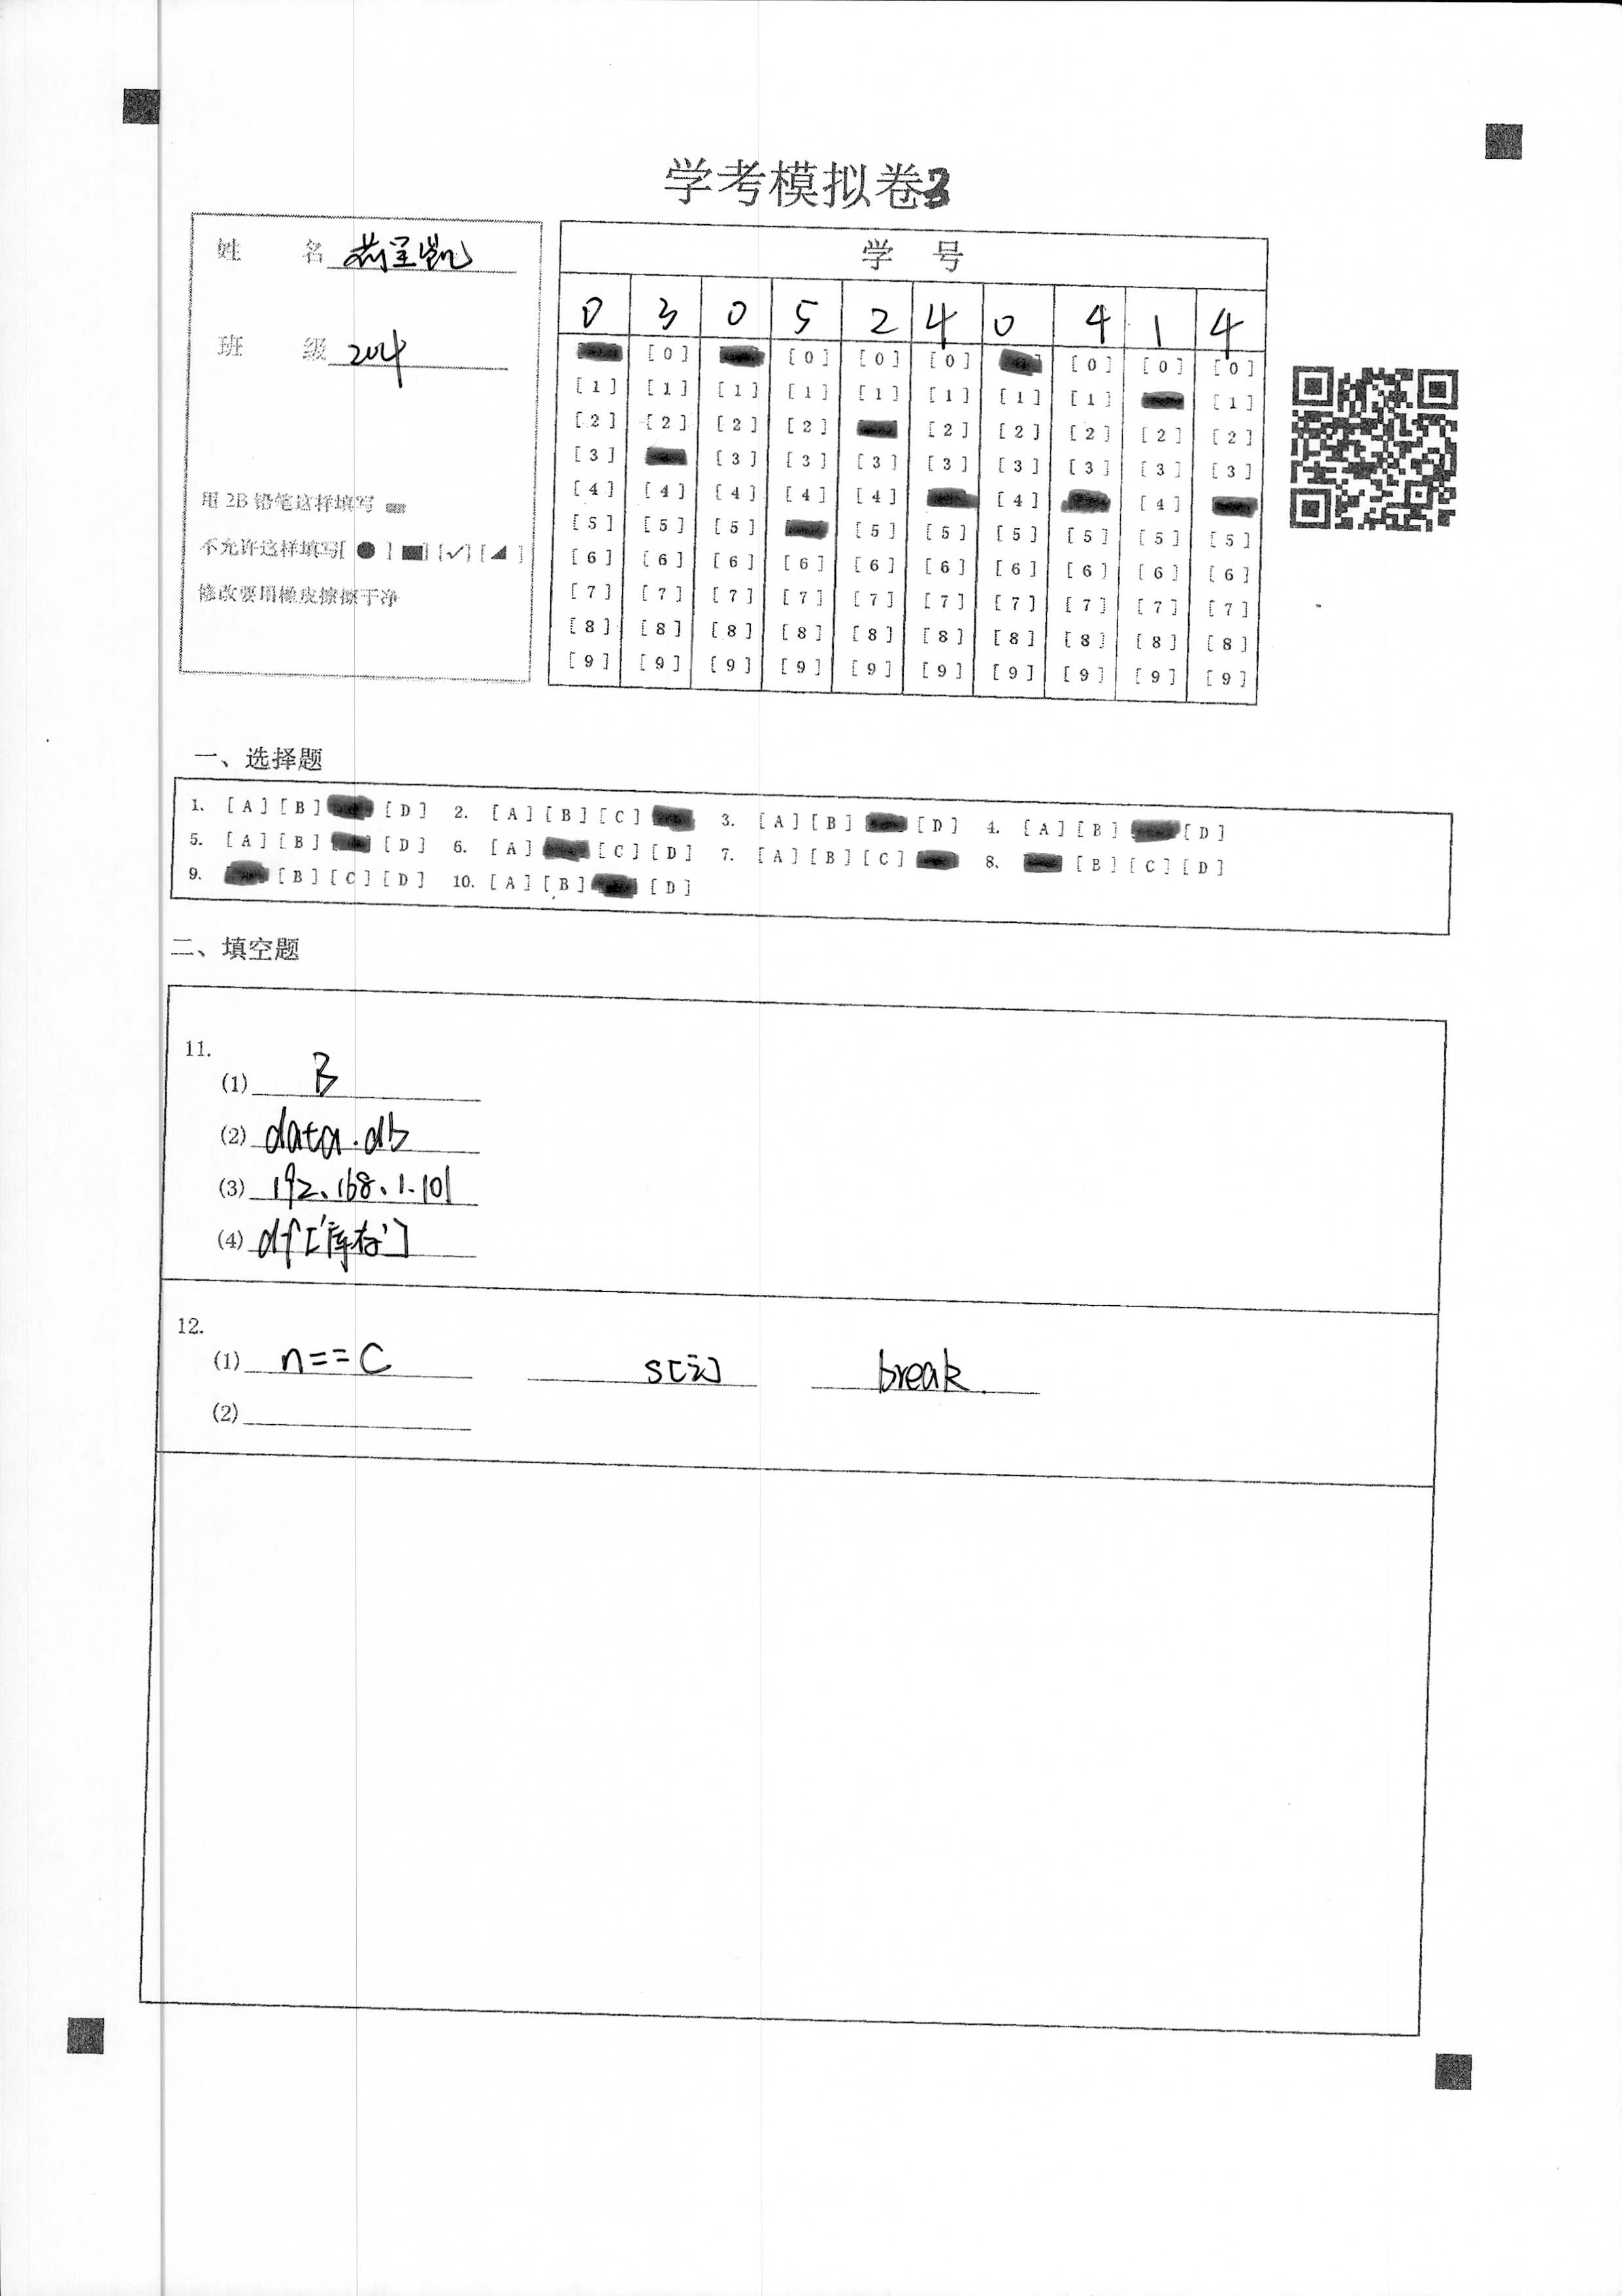 学考模拟卷3
姓 名
班 级 204
用 2B 铅笔这样填写
不允许这样填写[ ● ] [■] [✓] [◢ ]
修改要用橡皮擦擦干净
学 号
0 3 0 5 2 4 0 4 1 4
[0] [0] [0] [0] [0] [0] [0]
[1] [1] [1] [1] [1] [1] [1] [1] [1]
[2] [2] [2] [2] [2] [2] [2] [2] [2]
[3] [3] [3] [3] [3] [3] [3] [3] [3]
[4] [4] [4] [4] [4] [4] [4]
[5] [5] [5] [5] [5] [5] [5] [5] [5]
[6] [6] [6] [6] [6] [6] [6] [6] [6] [6]
[7] [7] [7] [7] [7] [7] [7] [7] [7] [7]
[8] [8] [8] [8] [8] [8] [8] [8] [8] [8]
[9] [9] [9] [9] [9] [9] [9] [9] [9] [9]
一、选择题
1. [A] [B] [D] 2. [A] [B] [C] 3. [A] [B] [D] 4. [A] [B] [D]
5. [A] [B] [D] 6. [A] [C] [D] 7. [A] [B] [C] 8. [B] [C] [D]
9. [B] [C] [D] 10. [A] [B] [D]
二、填空题
11.
(1) B
(2) data.db
(3) 192、168、1.101
(4) df['库存']
12.
(1) n==C s[i] break
(2)